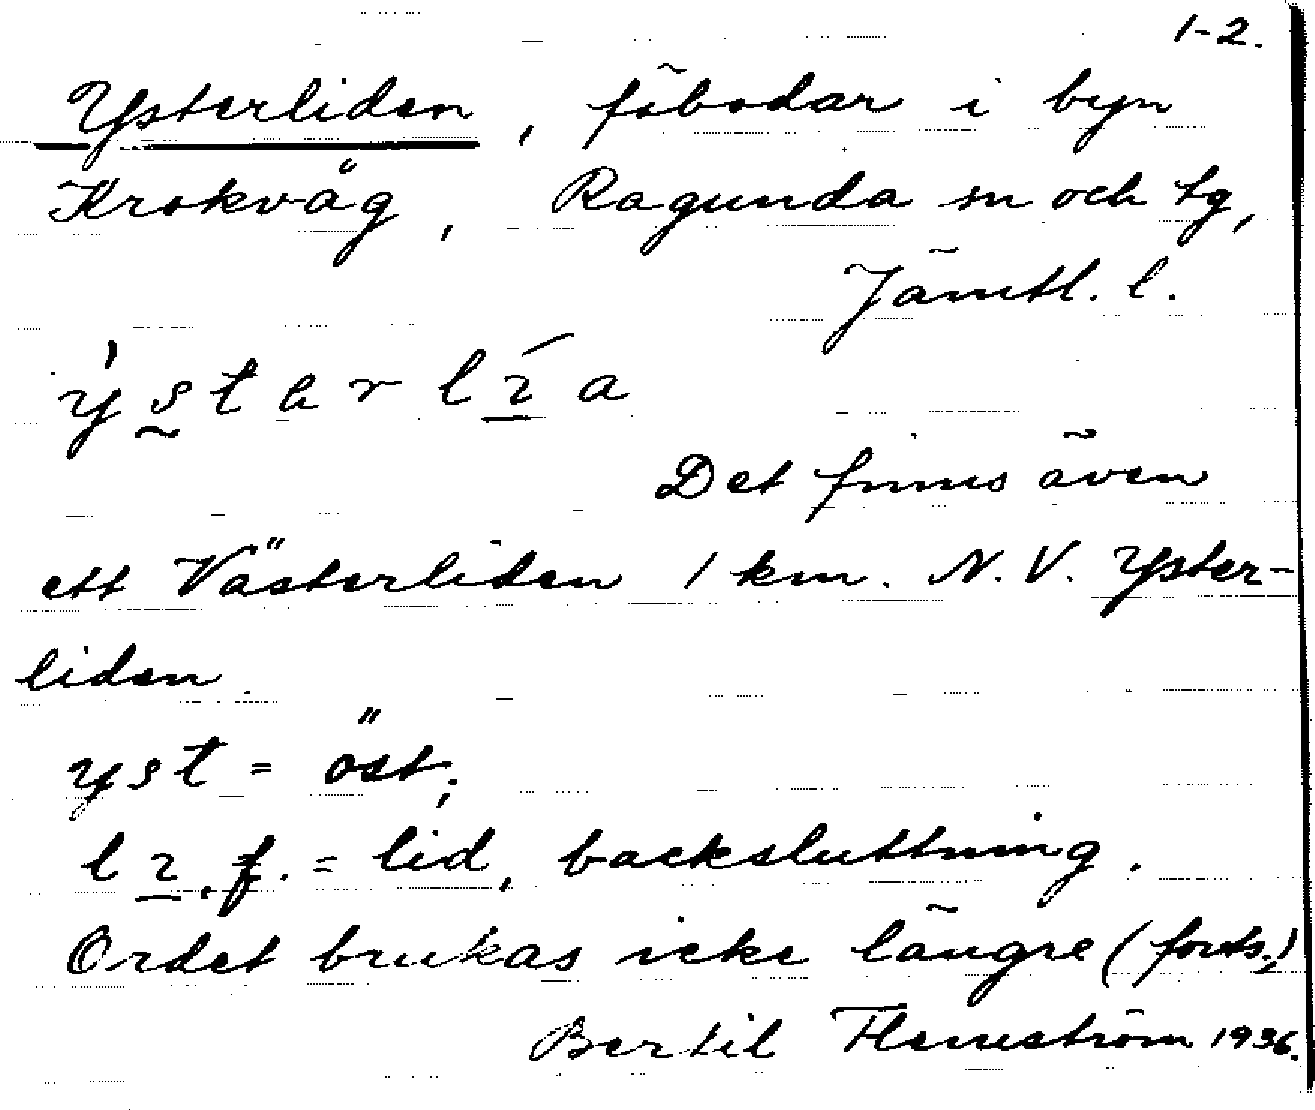 1-2.
Ysterliden, fäbodar i byn
Krokvåg, Ragunda sn och tg,
Jämtl. l.
ẏstarlı̄́a
Det finns även
ett Västerliden 1 km. N.V. Yster-
liden.
yst = öst;
lı̱. f. = lid, backsluttning.
Ordet brukas icke längre (forts.)
Bertil Flemström 1936.